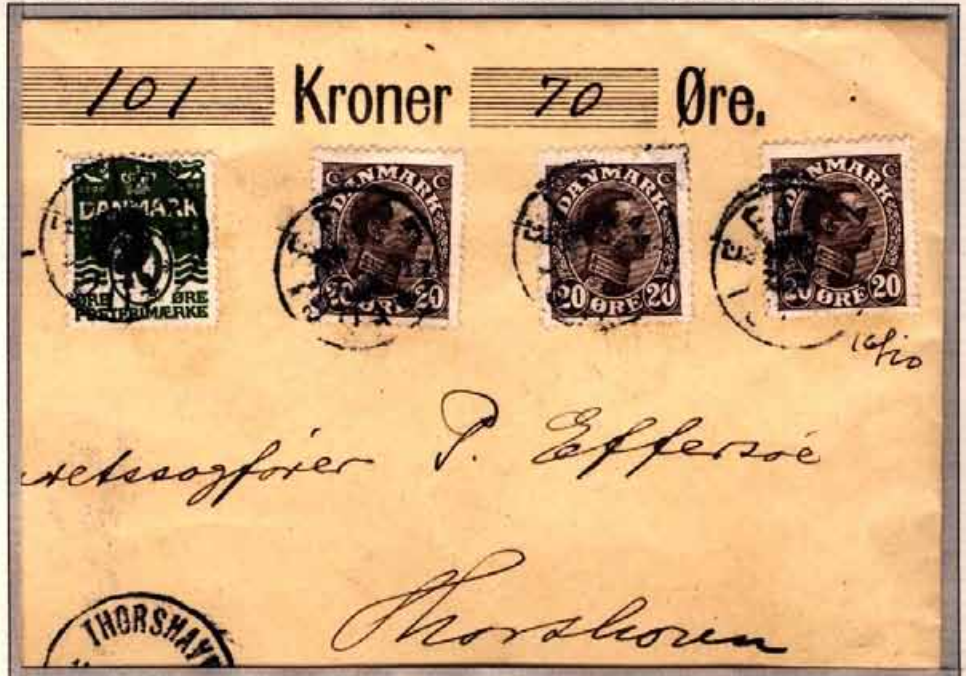 101 Kroner 70 Øre.
DANMARK
ØRE ØRE
POSTFRIMÆRKE
DANMARK
20 ØRE 20
DANMARK
20 ØRE 20
DANMARK
20 ØRE 20
16/10
retssagfører P. Effersøe
Thorshavn
THORSHAVN